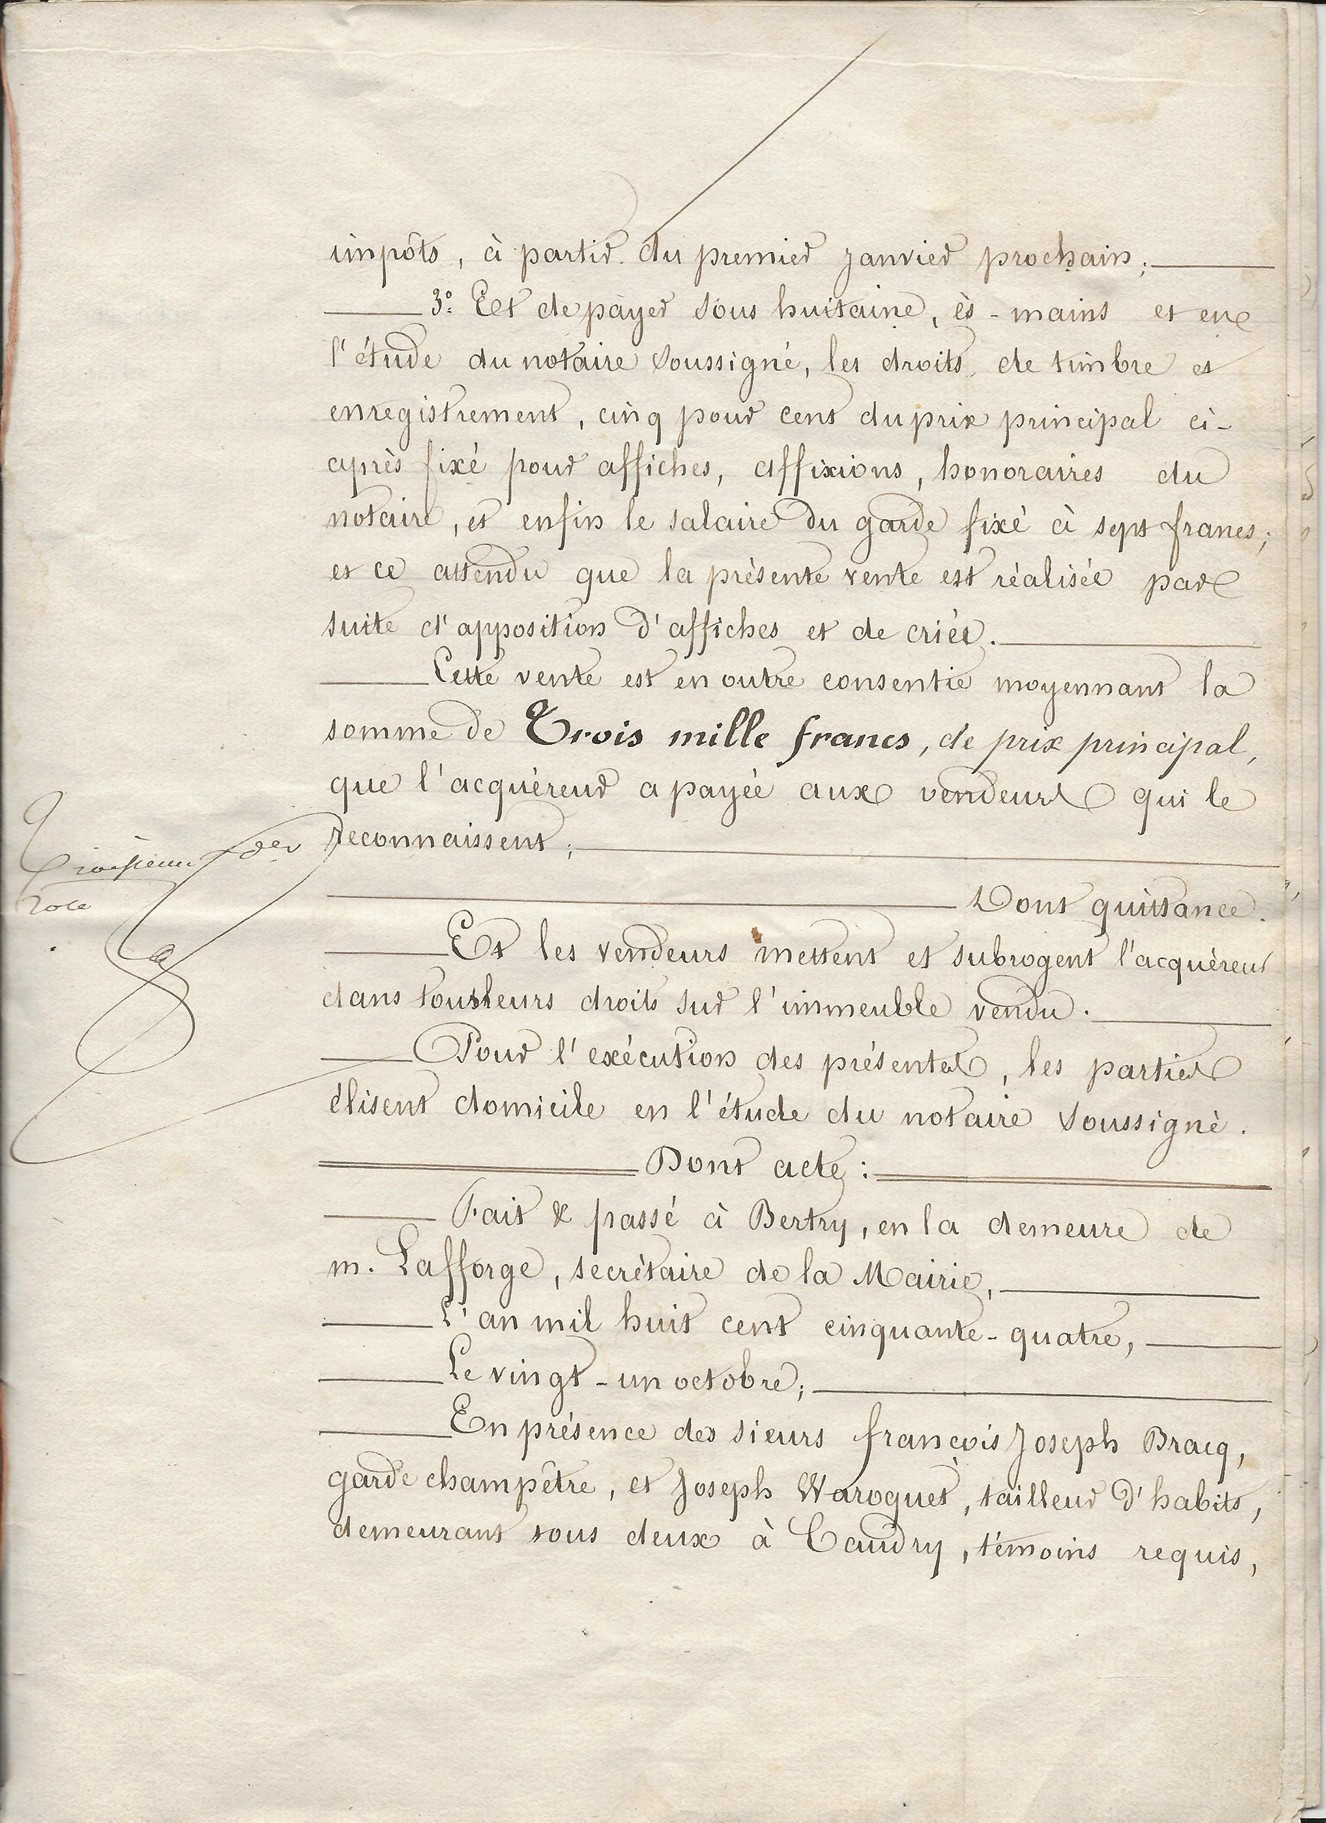 impôts, à partir du premier janvier prochain;
3º Et de payer sous huitaine, ès-mains et en
l'étude du notaire soussigné, les droits de timbre et
enregistrement, cinq pour cent du prix principal ci-
après fixé pour affiches, affixions, honoraires du
notaire, et enfin le salaire du garde fixé à sept francs;
et ce attendu que la présente vente est réalisée par
suite d'apposition d'affiches et de criés.
Cette vente est en outre consentie moyennant la
somme de Trois mille francs, de prix principal,
que l'acquéreur a payée aux vendeurs qui le
reconnaissent;
Troisième
rôle
Dont quittance.
Et les vendeurs mettent et subrogent l'acquéreur
dans tous leurs droits sur l'immeuble vendu.
Pour l'exécution des présentes, les parties
élisent domicile en l'étude du notaire soussigné.
Dont acte:
Fait & passé à Bertry, en la demeure de
m. Lafforge, secrétaire de la Mairie,
L'an mil huit cent cinquante-quatre,
Le vingt-un octobre;
En présence des sieurs françois Joseph Bracq,
garde champêtre, et Joseph Waroquet, tailleur d'habits,
demeurant tous deux à Caudry, témoins requis,